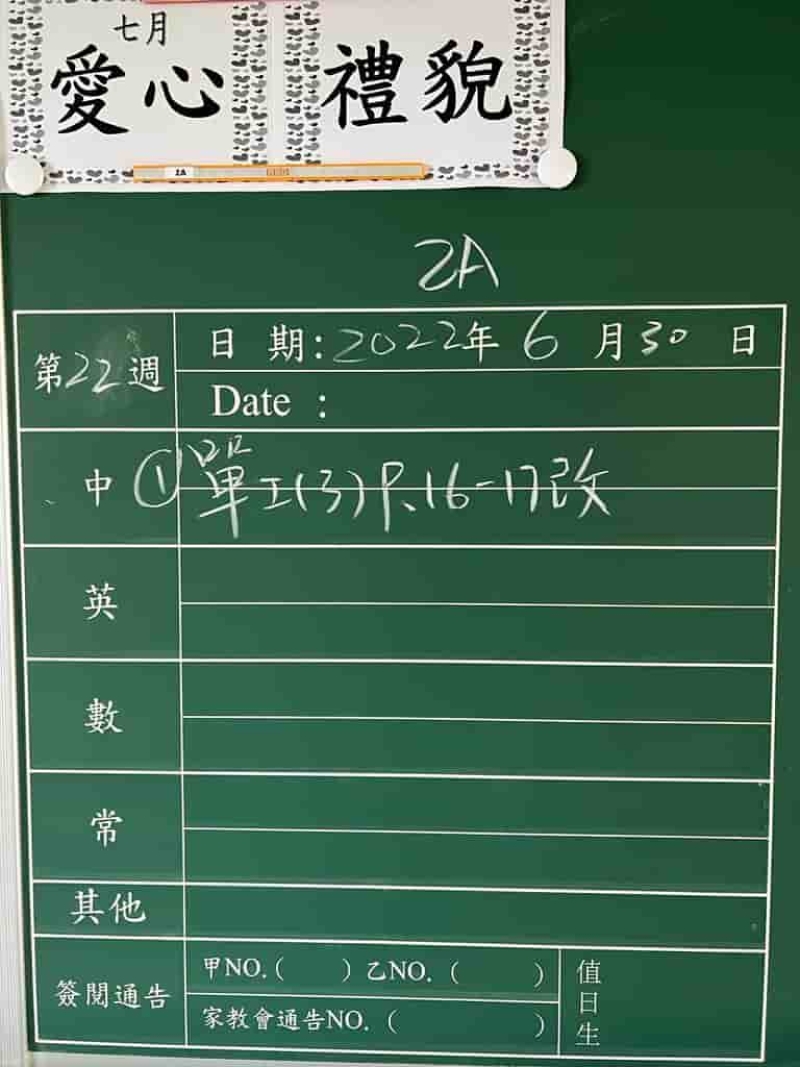 七月
愛心 禮貌
1A
2A
第22週
日 期：2022年 6 月 30 日
Date ：
中 ① 單工(3) P.16-17改
英
數
常
其他
簽閱通告
甲NO.( ) 乙NO. ( )
家教會通告NO. ( )
值日生